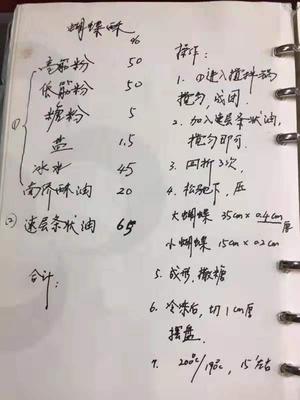 蝴蝶酥
%
① 高筋粉 50
低筋粉 50
糖粉 5
盐 1.5
冰水 45
南侨酥油 20
② 速层条状油 65
合计:
操作:
1. ①进入搅拌
搅匀, 成团.
2. 加入速层条状油,
搅匀即可.
3. 四折3次,
4. 松弛下, 压
大蝴蝶 35cm×0.4cm厚
小蝴蝶 15cm×0.2cm
5. 成形, 撒糖
6. 冷冻后, 切1cm厚
摆盘.
7. 200℃/190℃, 15'左右